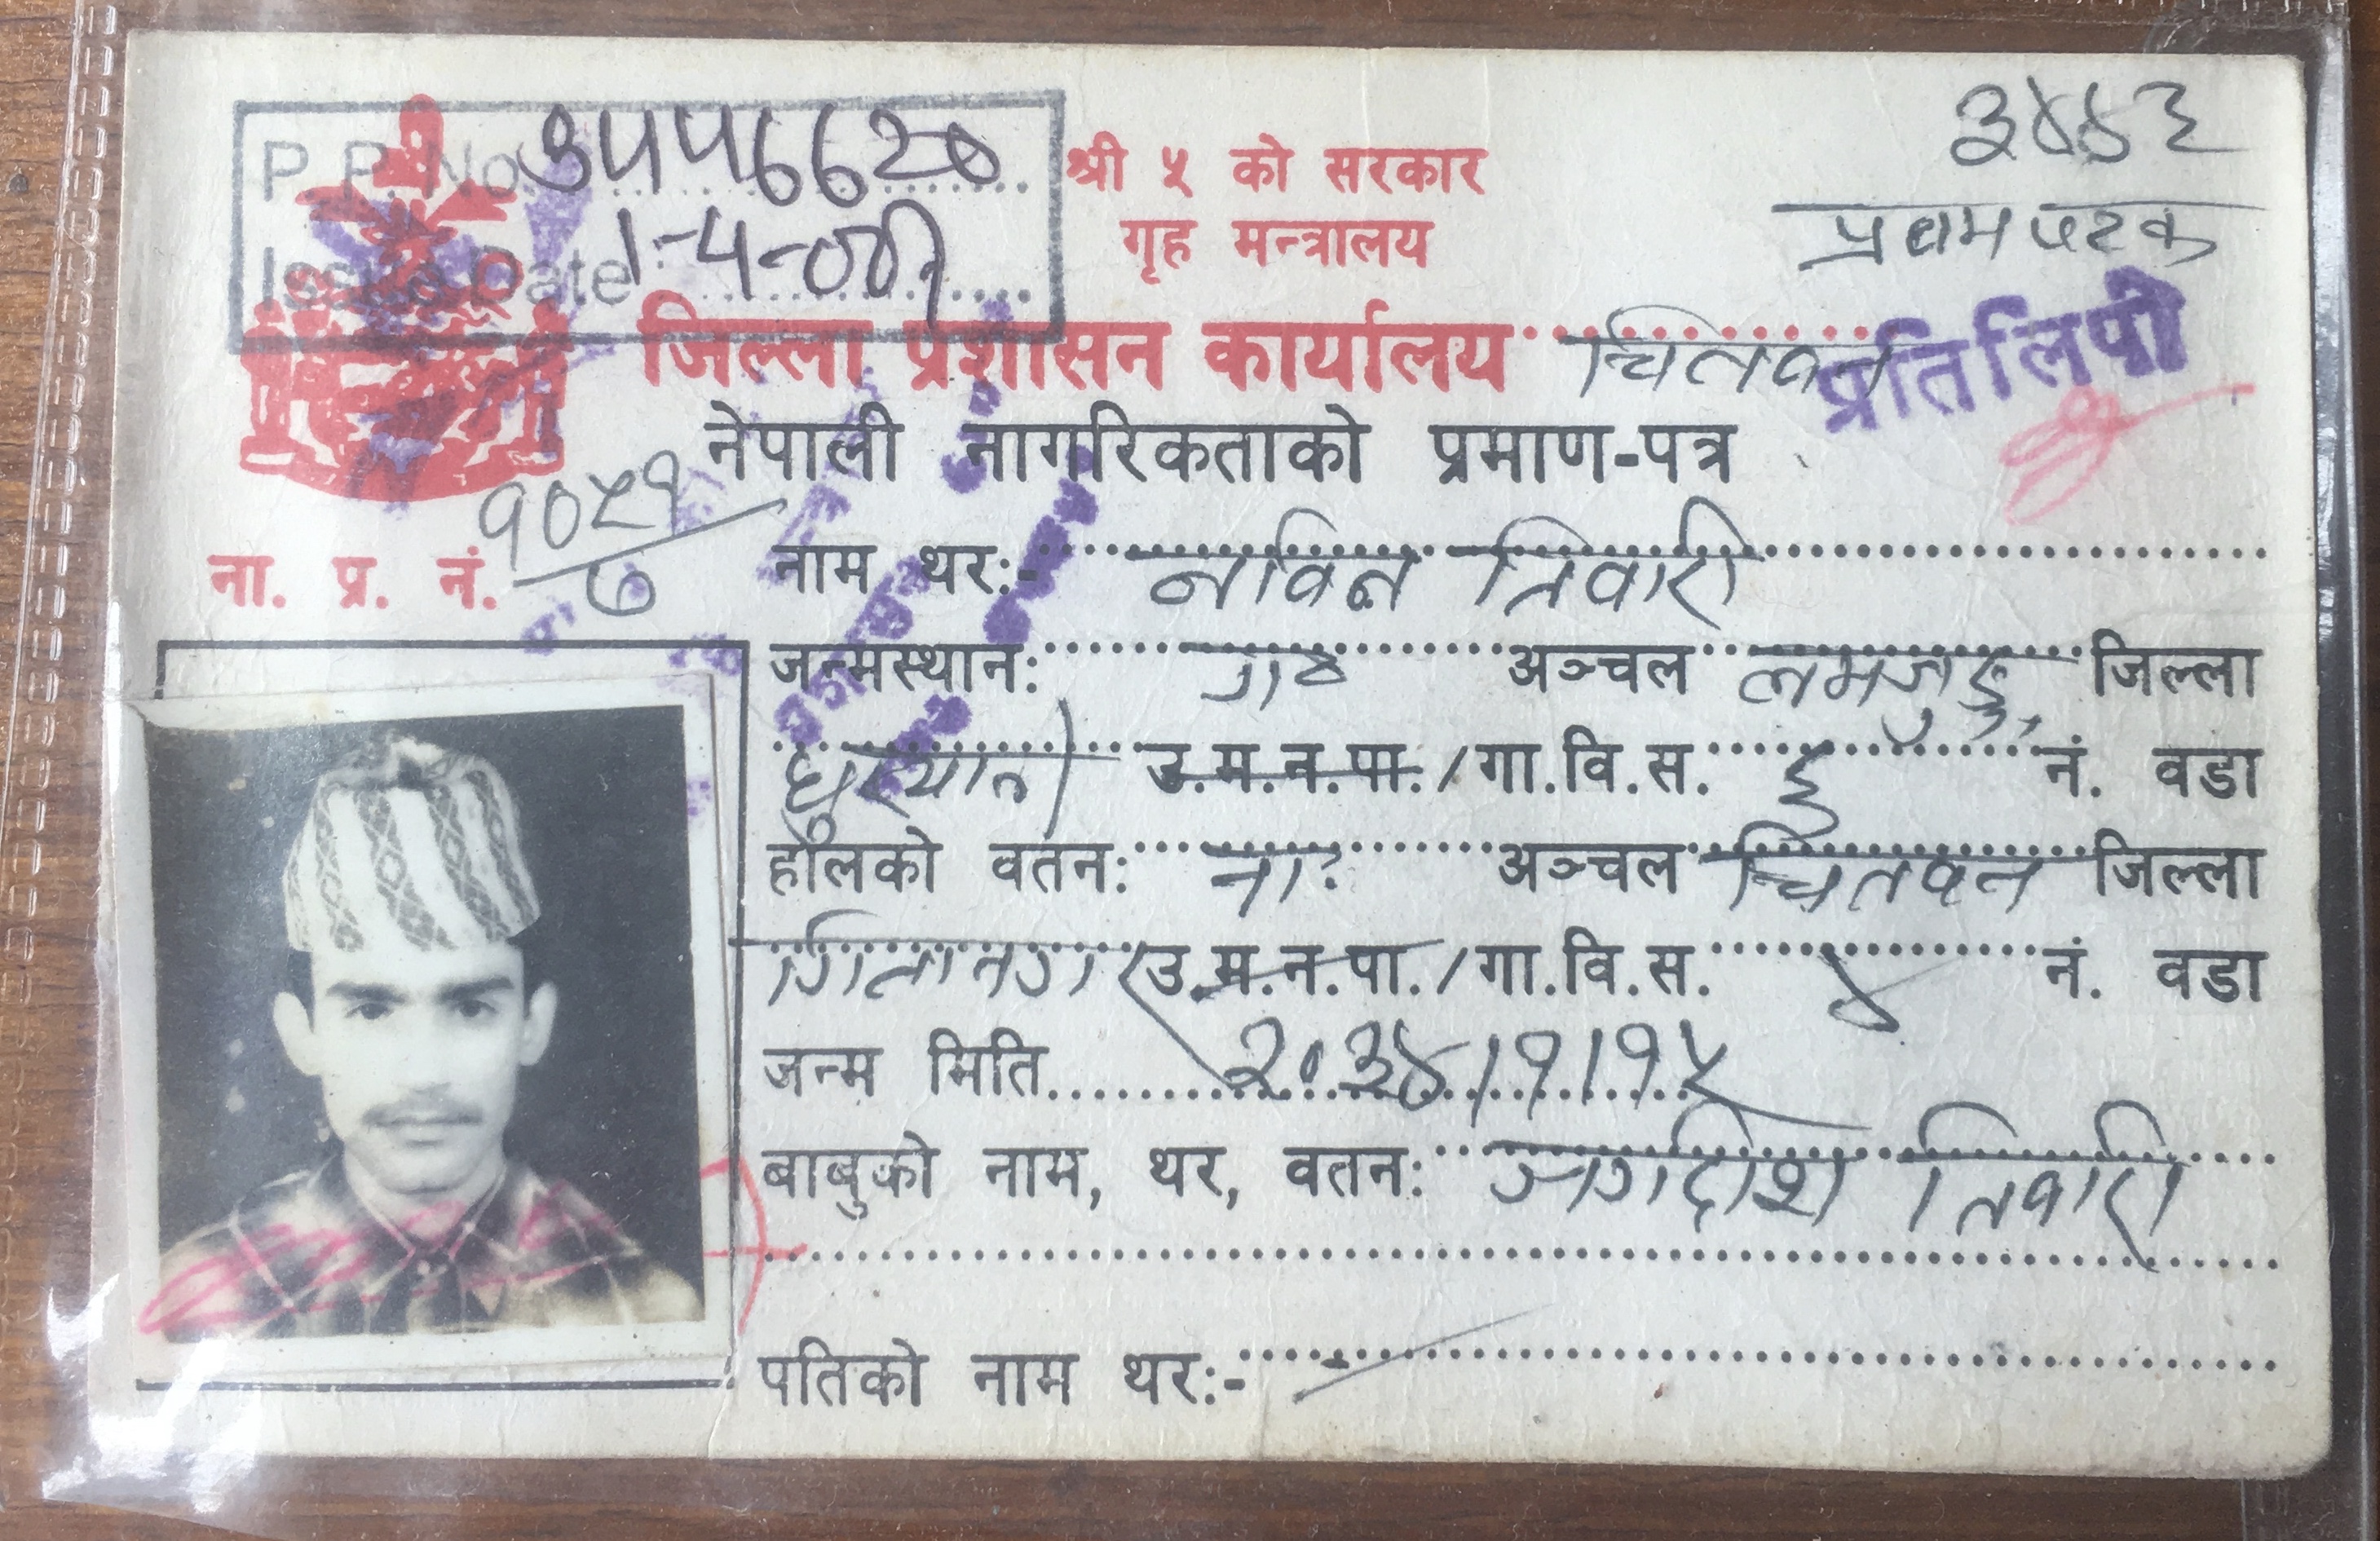 ३४४६
प्रथम पटक
P. P. No.
Issue Date 1-4-
श्री ५ को सरकार
गृह मन्त्रालय
जिल्ला प्रशासन कार्यालय चितवन
प्रतिलिपी
नेपाली नागरिकताको प्रमाण-पत्र
ना. प्र. नं. १०५१/७
नाम थर:- नविन तिवारी
जन्मस्थान: गण्ड अञ्चल लमजुङ जिल्ला
उ.म.न.पा./गा.वि.स. ६ नं. वडा
हालको वतन: ना. अञ्चल चितवन जिल्ला
गितानगर उ.म.न.पा./गा.वि.स. ४ नं. वडा
जन्म मिति २०३४।१।१५
बाबुको नाम, थर, वतन: जगदिश तिवारी
पतिको नाम थर:-